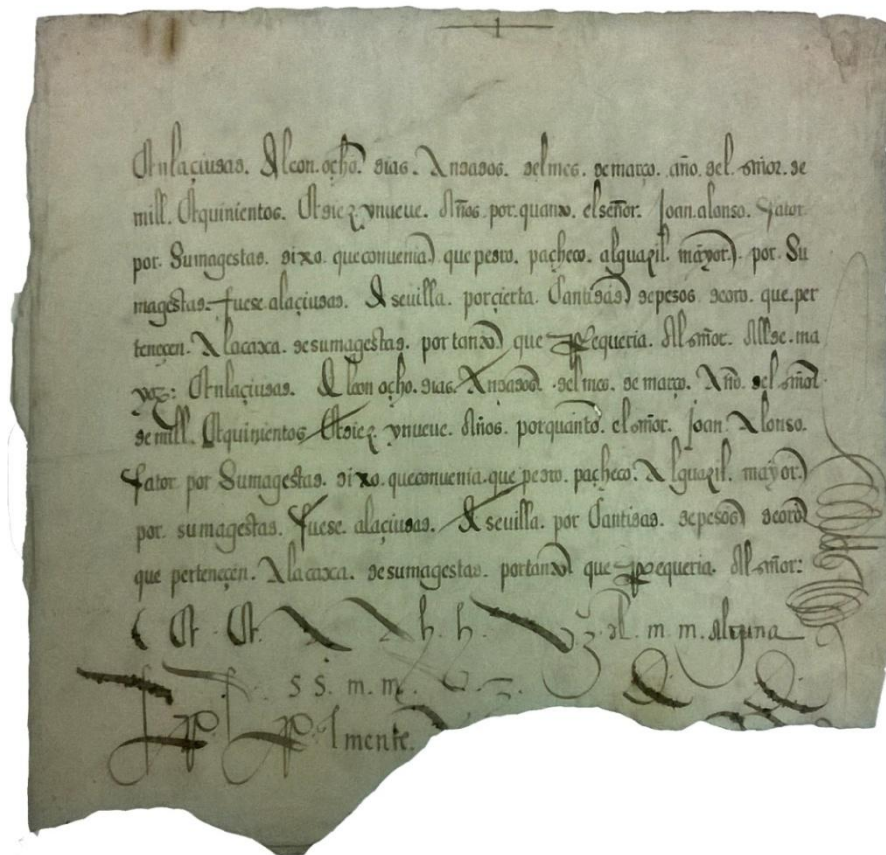 1
En la çiudad. De leon. ocho. dias. Andados. del mes. de março. año. del. señor. de
mill. E quinientos. E diez. y nueve. Años. por. quanto. el señor. Joan. alonso. fator
por. Su magestad. dixo. que convenia. que pedro. pacheco. alguazil. mayor. por. Su
magestad. fuese. a la çiudad. De sevilla. por çierta. Cantidad. de pesos. de oro. que. per
teneçen. A la caxa. de su magestad. por tanto que Requeria. Al señor. All de. ma
yor: En la çiudad. De leon ocho. dias. Andados. del mes. de março. Año. del señor.
de mill. E quinientos E diez. y nueve. Años. por quanto. el señor. Joan Alonso.
fator por Su magestad. dixo. que convenia. que pedro. pacheco. Alguazil. mayor.
por. su magestad. fuese. a la çiudad. De sevilla. por Cantidad. de pesos de oro
que perteneçen. A la caxa. de su magestad. por tanto que Requeria. Al señor:
E. E. h. h. m. m.
s s. m. m.
mente.